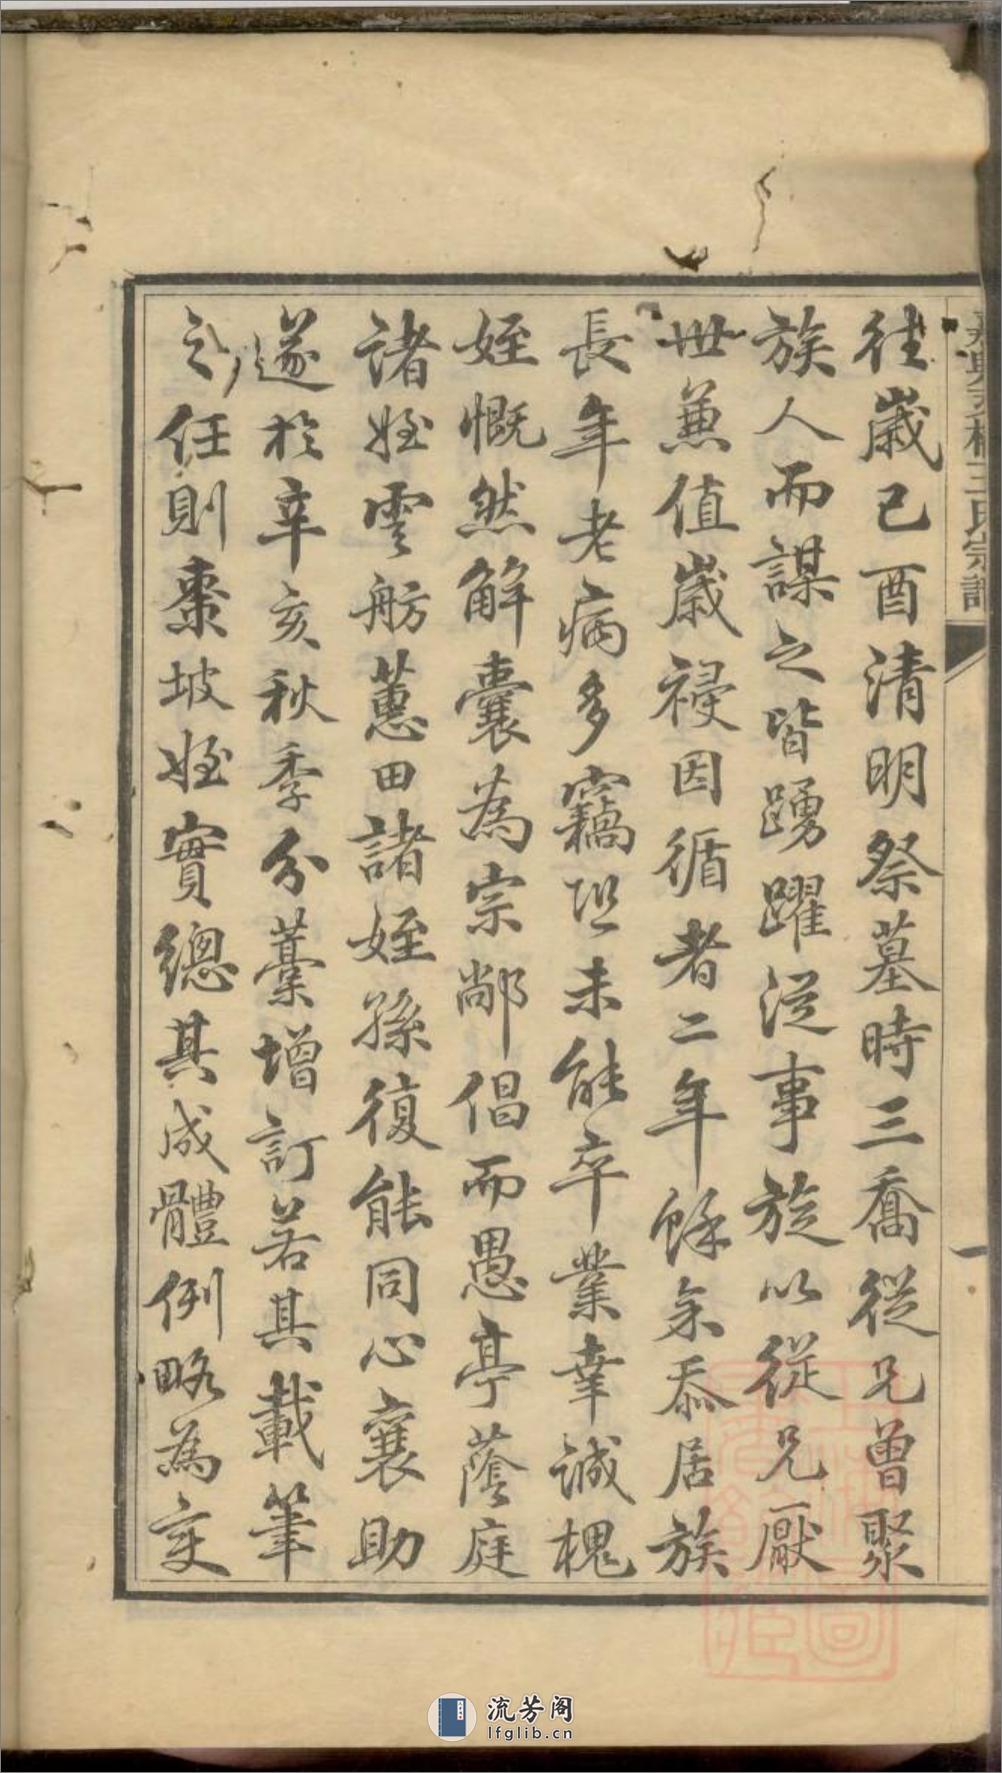 往歲己酉清明祭墓時三喬從兄曾聚
族人而謀之皆踴躍從事旋以從兄厭
世兼值歲祲因循者二年餘余忝居族
長年老病多竊恐未能卒業幸誠槐
姪慨然解囊為宗鄰倡而愚亭蔭庭
諸姪雲舫蕙田諸姪孫復能同心襄助
遂於辛亥秋季分藁增訂若其載筆
之任則棗坡姪實總其成體例略為變
王氏宗譜
一
流芳阁
lfglib.cn